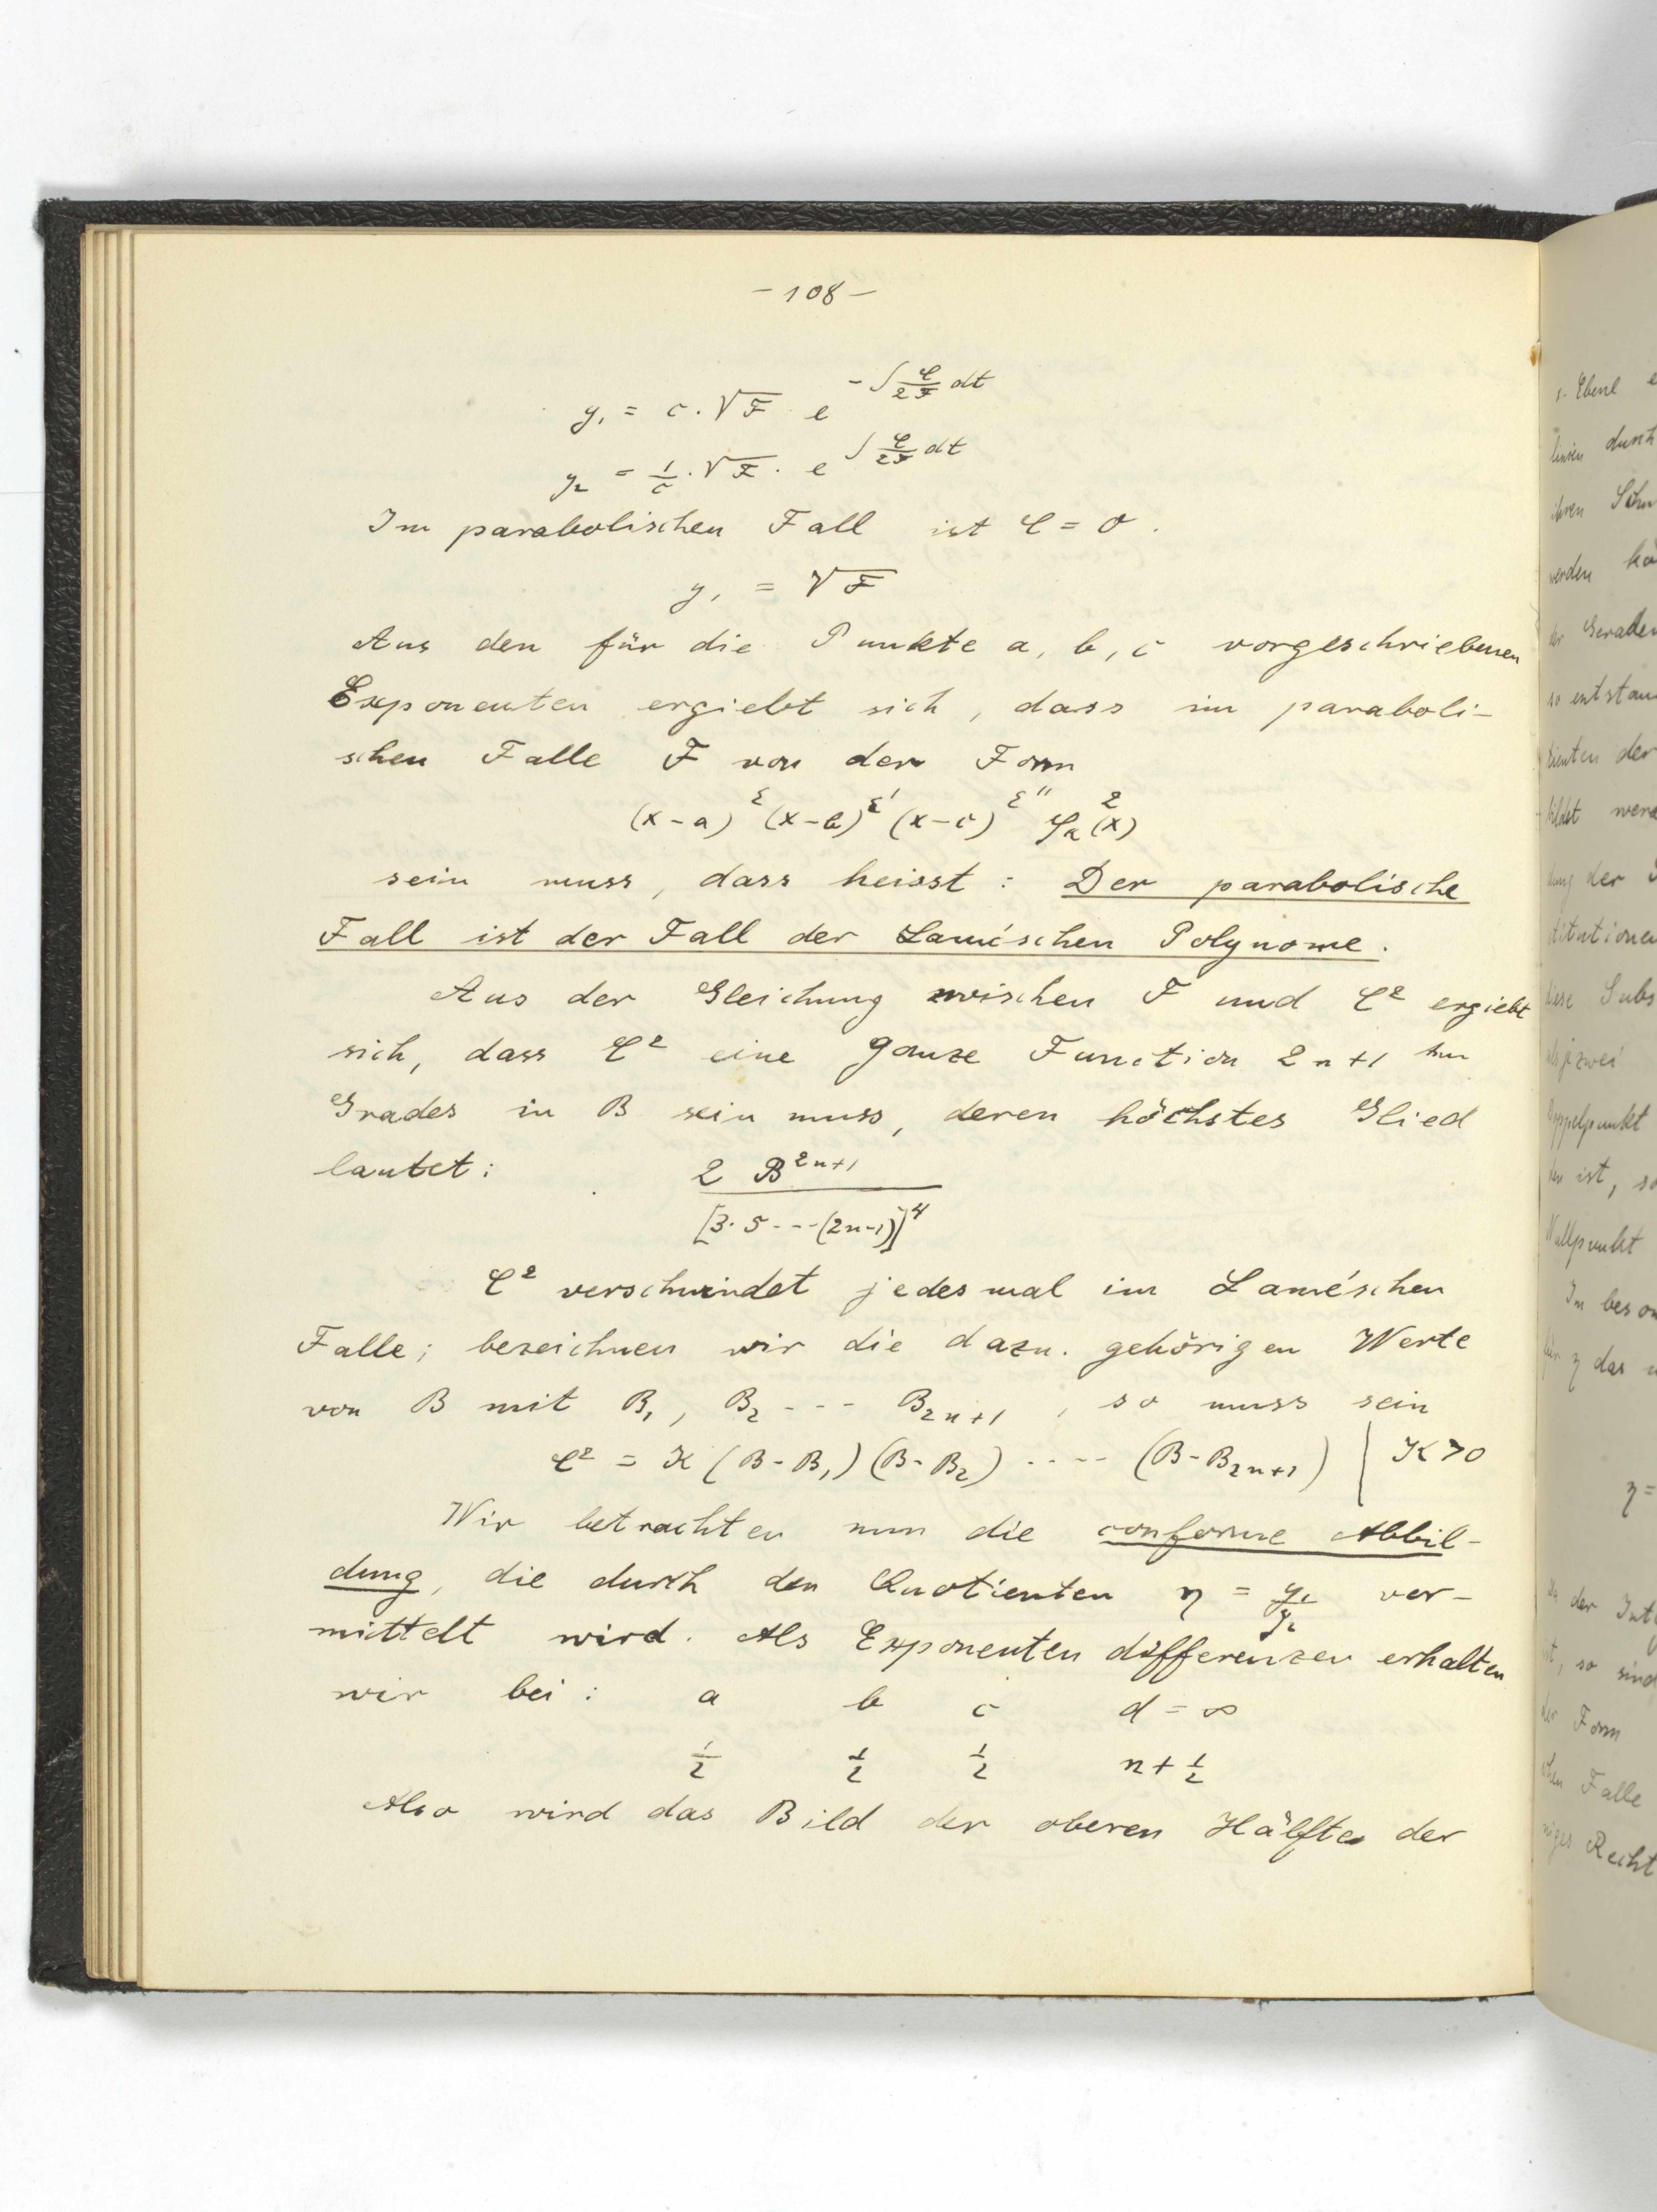 - 108 -
y₁ = c · √F · e^{-∫ \frac{C}{2F} dt}
y₂ = \frac{1}{c} · √F · e^{∫ \frac{C}{2F} dt}
Im parabolischen Fall ist C = 0.
y₁ = √F
Aus den für die Punkte a, b, c vorgeschriebenen
Exponenten ergiebt sich, dass im paraboli-
schen Falle F von der Form
(x-a)^{ε} (x-b)^{ε'} (x-c)^{ε''} φ_{a}^{2}(x)
sein muss, dass heisst: Der parabolische
Fall ist der Fall der Lamé'schen Polynome.
Aus der Gleichung zwischen F und C² ergiebt
sich, dass C² eine ganze Function 2n+1 ten
Grades in B sein muss, deren höchstes Glied
lautet: \frac{2 B^{2n+1}}{[3·5---(2n-1)]^4}
C² verschwindet jedesmal im Lamé'schen
Falle; bezeichnen wir die dazu. gehörigen Werte
von B mit B₁, B₂ --- B_{2n+1}, so muss sein
C² = K (B-B₁)(B-B₂) ---- (B-B_{2n+1}) | K>0
Wir betrachten nun die conforme Abbil-
dung, die durch den Quotienten η = \frac{y₁}{y₂} ver-
mittelt wird. Als Exponentendifferenzen erhalten
wir bei: a b c d = ∞
\frac{1}{2} \frac{1}{2} \frac{1}{2} n + \frac{1}{2}
Also wird das Bild der oberen Hälfte der
Ebene
durch
ihren
werden
so entstan
der
der
zwei
Doppelpunkt
ist, so
Nullpunkt
η das
η =
der
so sind
der Form
Falle
Recht